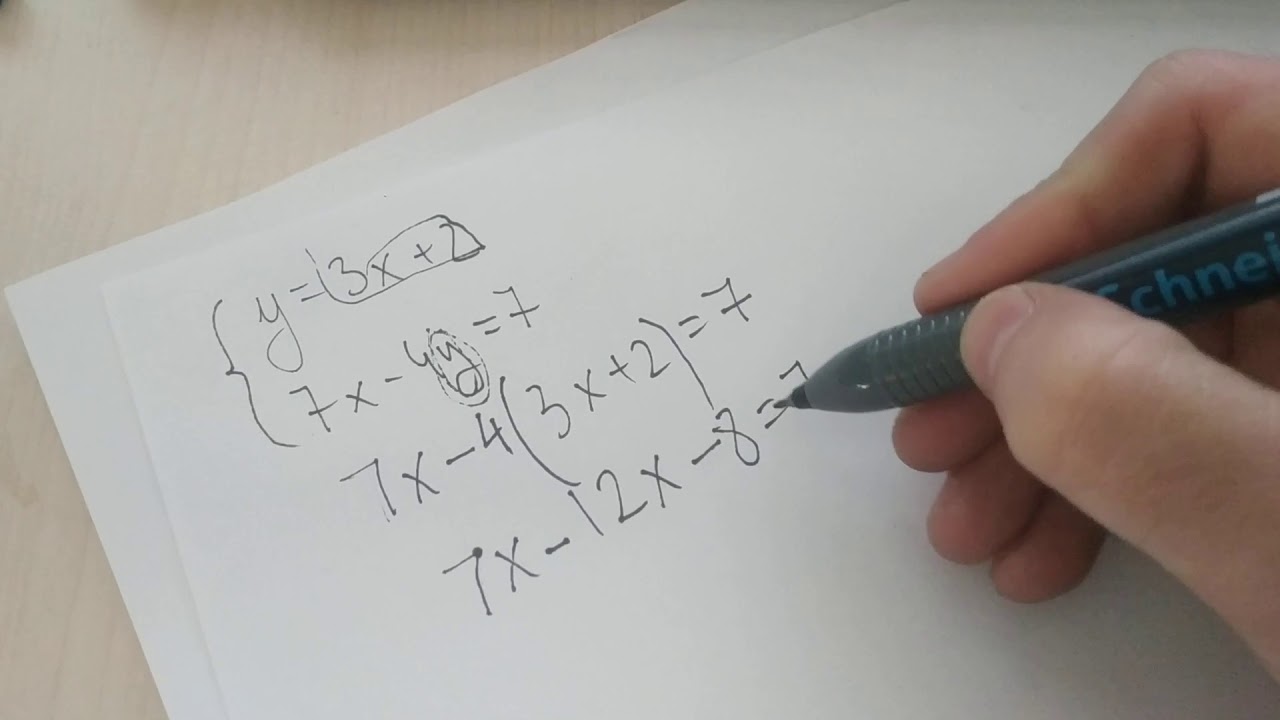 y=3x+2
7x-4y=7
7x-4(3x+2)=7
7x-12x-8=7
Schnei